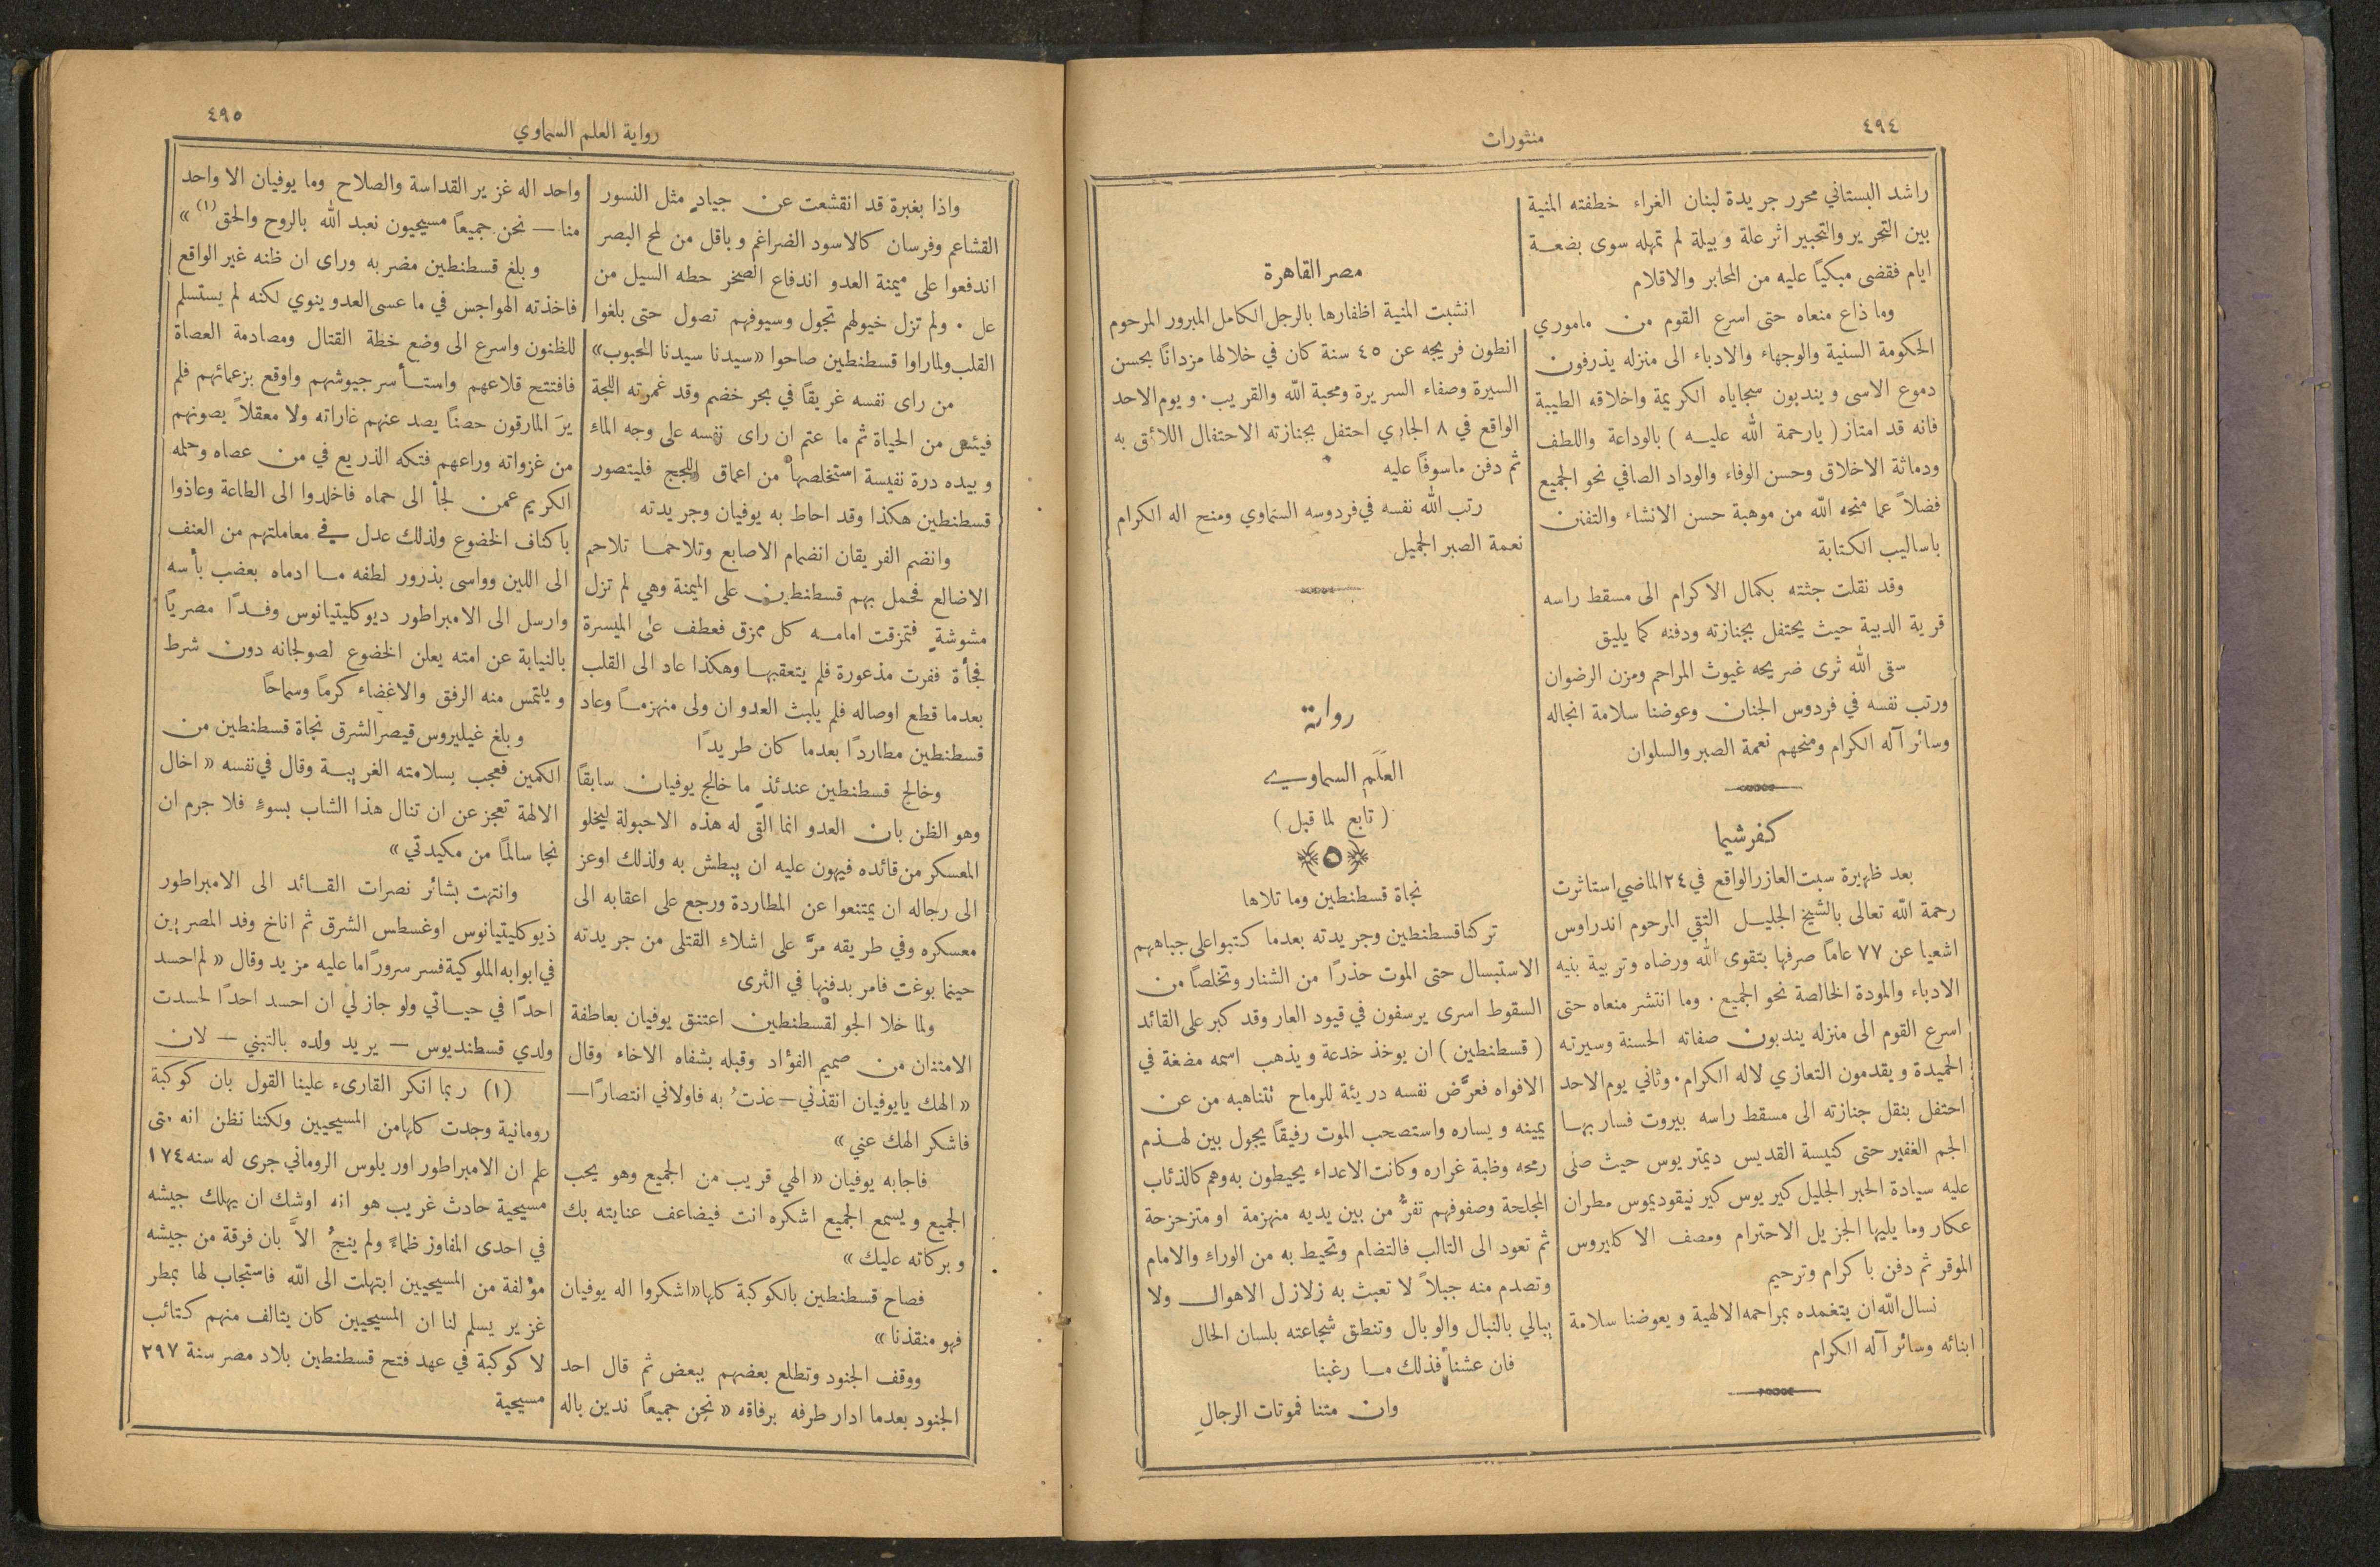 ٤٩٤
منثورات
راشد البستاني محرر جريدة لبنان الغراء خطفته المنية
بين التحرير والتحبير اثر علة وبيلة لم تمهله سوى بضعة
ايام فقضى مبكيًا عليه من المحابر والاقلام
وما ذاع منعاه حتى اسرع القوم من ماموري
الحكومة السنية والوجهاء والادباء الى منزله يذرفون
دموع الاسى ويندبون سجاياه الكريمة واخلاقه الطيبة
فانه قد امتاز ( يارحمة الله عليه ) بالوداعة واللطف
ودماثة الاخلاق وحسن الوفاء والوداد الصافي نحو الجميع
فضلاً عما منحه الله من موهبة حسن الانشاء والتفنن
باساليب الكتابة
وقد نقلت جثته بكمال الاكرام الى مسقط راسه
قرية الدبية حيث يحتفل بجنازته ودفنه كما يليق
سقى الله ثرى ضريحه غيوث المراحم ومزن الرضوان
ورتب نفسه في فردوس الجنان وعوضنا سلامة انجاله
وسائر آله الكرام ومنحهم نعمة الصبر والسلوان
كفرشيما
بعد ظهيرة سبت العازر الواقع في ٢٤ الماضي استاثرت
رحمة الله تعالى بالشيخ الجليل التقي المرحوم اندراوس
اشعيا عن ٧٧ عامًا صرفها بتقوى الله ورضاه وتربية بنيه
الادباء والمودة الخالصة نحو الجميع . وما انتشر منعاه حتى
اسرع القوم الى منزله يندبون صفاته الحسنة وسيرته
الحميدة ويقدمون التعازي لاله الكرام . وثاني يوم الاحد
احتفل بنقل جنازته الى مسقط راسه بيروت فسار بها
الجم الغفير حتى كنيسة القديس ديمتريوس حيث صلى
عليه سيادة الحبر الجليل كيريوس كير نيقوديموس مطران
عكار وما يليها الجزيل الاحترام ومصف الاكليروس
الموقر ثم دفن باكرام وترحيم
نسال الله ان يتغمده بمراحمه الالهية ويعوضنا سلامة
ابنائه وسائر آله الكرام
مصر القاهرة
انشبت المنية اظفارها بالرجل الكامل المبرور المرحوم
انطون فريجه عن ٤٥ سنة كان في خلالها مزدانًا بحسن
السيرة وصفاء السريرة ومحبة الله والقريب . ويوم الاحد
الواقع في ٨ الجاري احتفل بجنازته الاحتفال اللائق به
ثم دفن ماسوفًا عليه
رتب الله نفسه في فردوسه السماوي ومنح اله الكرام
نعمة الصبر الجميل
رواية
العَلَم السماوي
( تابع لما قبل )
﴿٥﴾
نجاة قسطنطين وما تلاها
تركنا قسطنطين وجريدته بعدما كتبوا على جباههم
الاستبسال حتى الموت حذرًا من الشنار وتخلصًا من
السقوط اسرى يرسفون في قيود العار وقد كبر على القائد
( قسطنطين ) ان يوخذ خدعة ويذهب اسمه مضغة في
الافواه فعرَّض نفسه دريئة للرماح تتناهبه من عن
يمينه ويساره واستصحب الموت رفيقًا يجول بين لهذم
رمحه وظبة غراره وكانت الاعداء يحيطون به وهم كالذئاب
المجلحة وصفوفهم تفرُّ من بين يديه منهزمة او متزحزحة
ثم تعود الى التالب فالتضام وتحيط به من الوراء والامام
وتصدم منه جبلاً لا تعبث به زلازل الاهوال ولا
يبالي بالنبال والوبال وتنطق شجاعته بلسان الحال
فان عشنا فذلك ما رغبنا
وان متنا فموتات الرجالِ
٤٩٥
رواية العلم السماوي
واذا بغبرة قد انقشعت عن جيادٍ مثل النسور
القشاعم وفرسان كالاسود الضراغم وباقل من لمح البصر
اندفعوا على ميمنة العدو اندفاع الصخر حطه السيل من
عل . ولم تزل خيولهم تجول وسيوفهم تصول حتى بلغوا
القلب ولما راوا قسطنطين صاحوا «سيدنا سيدنا المحبوب»
من راى نفسه غريقًا في بحر خضم وقد غمرته اللجة
فيئس من الحياة ثم ما عتم ان راى نفسه على وجه الماء
وبيده درة نفيسة استخلصها من اعماق اللجج فليتصور
قسطنطين هكذا وقد احاط به يوفيان وجريدته
وانضم الفريقان انضمام الاصابع وتلاحما تلاحم
الاضالع فحمل بهم قسطنطين على الميمنة وهي لم تزل
مشوشةٍ فتمزقت امامه كل ممزق فعطف على الميسرة
فجأة ففرت مذعورة فلم يتعقبها وهكذا عاد الى القلب
بعدما قطع اوصاله فلم يلبث العدو ان ولى منهزمًا وعاد
قسطنطين مطاردًا بعدما كان طريدًا
وخالج قسطنطين عندئذٍ ما خالج يوفيان سابقًا
وهو الظن بان العدو انما القى له هذه الاحبولة ليخلو
المعسكر من قائده فيهون عليه ان يبطش به ولذلك اوعز
الى رجاله ان يمتنعوا عن المطاردة ورجع على اعقابه الى
معسكره وفي طريقه مرَّ على اشلاء القتلى من جريدته
حينما بوغت فامر بدفنها في الثرى
ولما خلا الجو لقسطنطين اعتنق يوفيان بعاطفة
الامتنان من صميم الفؤاد وقبله بشفاه الاخاء وقال
« الهك يايوفيان انقذني — عذتُ به فاولاني انتصارًا —
فاشكر الهك عني »
فاجابه يوفيان « الهي قريب من الجميع وهو يحب
الجميع ويسمع الجميع اشكره انت فيضاعف عنايته بك
وبركاته عليك »
فصاح قسطنطين بالكوكبة كلها «اشكروا اله يوفيان
فهو منقذنا »
ووقف الجنود وتطلع بعضهم ببعض ثم قال احد
الجنود بعدما ادار طرفه برفاقه « نحن جميعًا ندين باله
واحد اله غزير القداسة والصلاح وما يوفيان الا واحد
منا — نحن جميعًا مسيحيون نعبد الله بالروح والحق (١) »
وبلغ قسطنطين مضربه وراى ان ظنه غير الواقع
فاخذته الهواجس في ما عسى العدو ينوي لكنه لم يستسلم
للظنون واسرع الى وضع خطة القتال ومصادمة العصاة
فافتتح قلاعهم واستأسر جيوشهم واوقع بزعمائهم فلم
يرَ المارقون حصنًا يصد عنهم غاراته ولا معقلاً يصونهم
من غزواته وراعهم فتكه الذريع في من عصاه وحلمه
الكريم عمن لجأ الى حماه فاخلدوا الى الطاعة وعاذوا
باكناف الخضوع ولذلك عدل في معاملتهم من العنف
الى اللين وواسى بذرور لطفه ما ادماه بعضب بأسه
وارسل الى الامبراطور ديوكليتيانوس وفدًا مصريًا
بالنيابة عن امته يعلن الخضوع لصولجانه دون شرط
ويلتمس منه الرفق والاغضاء كرمًا وسماحًا
وبلغ غيليروس قيصر الشرق نجاة قسطنطين من
الكمين فعجب بسلامته الغريبة وقال في نفسه « اخال
الالهة تعجز عن ان تنال هذا الشاب بسوءٍ فلا جرم ان
نجا سالمًا من مكيدتي »
وانتهت بشائر نصرات القائد الى الامبراطور
ذيوكليتيانوس اوغسطس الشرق ثم اناخ وفد المصريين
في ابوابه الملوكية فسر سرورًا ما عليه مزيد وقال « لم احسد
احدًا في حياتي ولو جاز لي ان احسد احدًا لحسدت
ولدي قسطنديوس — يريد ولده بالتبني — لان
(١) ربما انكر القارىء علينا القول بان كوكبة
رومانية وجدت كلها من المسيحيين ولكننا نظن انه متى
علم ان الامبراطور اوريلوس الروماني جرى له سنه ١٧٤
مسيحية حادث غريب هو انه اوشك ان يهلك جيشه
في احدى المفاوز ظماءً ولم ينجُ الاَّ بان فرقة من جيشه
مؤلفة من المسيحيين ابتهلت الى الله فاستجاب لها بمطر
غزير يسلم لنا ان المسيحيين كان يتالف منهم كتائب
لا كوكبة في عهد فتح قسطنطين بلاد مصر سنة ٢٩٧
مسيحية